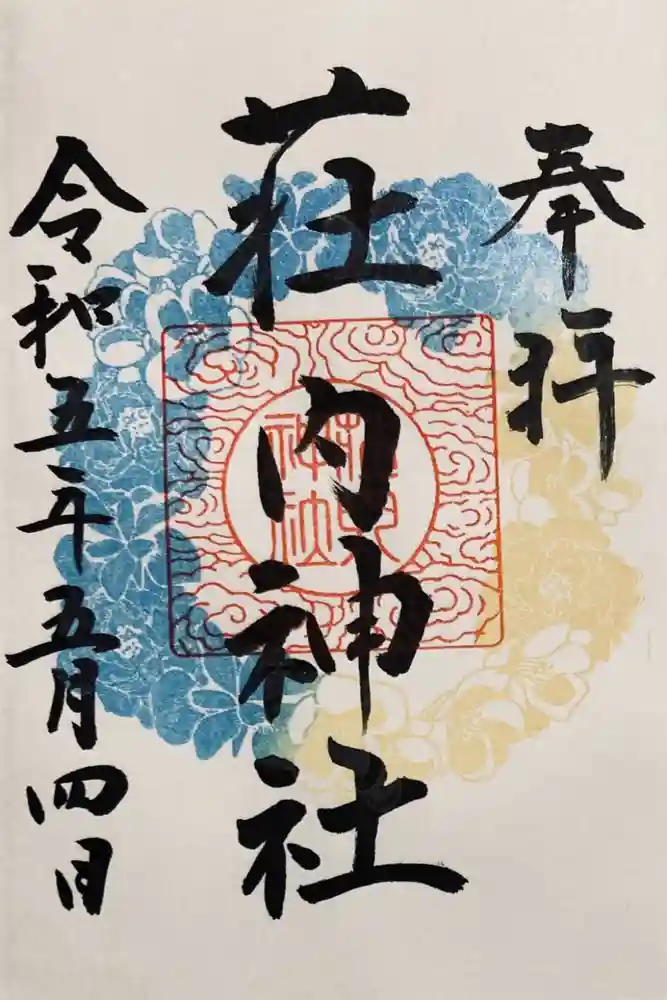 奉拝
荘内神社
令和五年五月四日
荘内神社